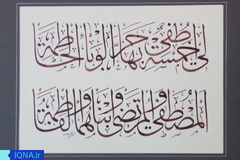 لی خمسة اطفی بها حر الوباء الحاطمة
المصطفی و المرتضی و ابناهما و الفاطمة
IQNA.ir